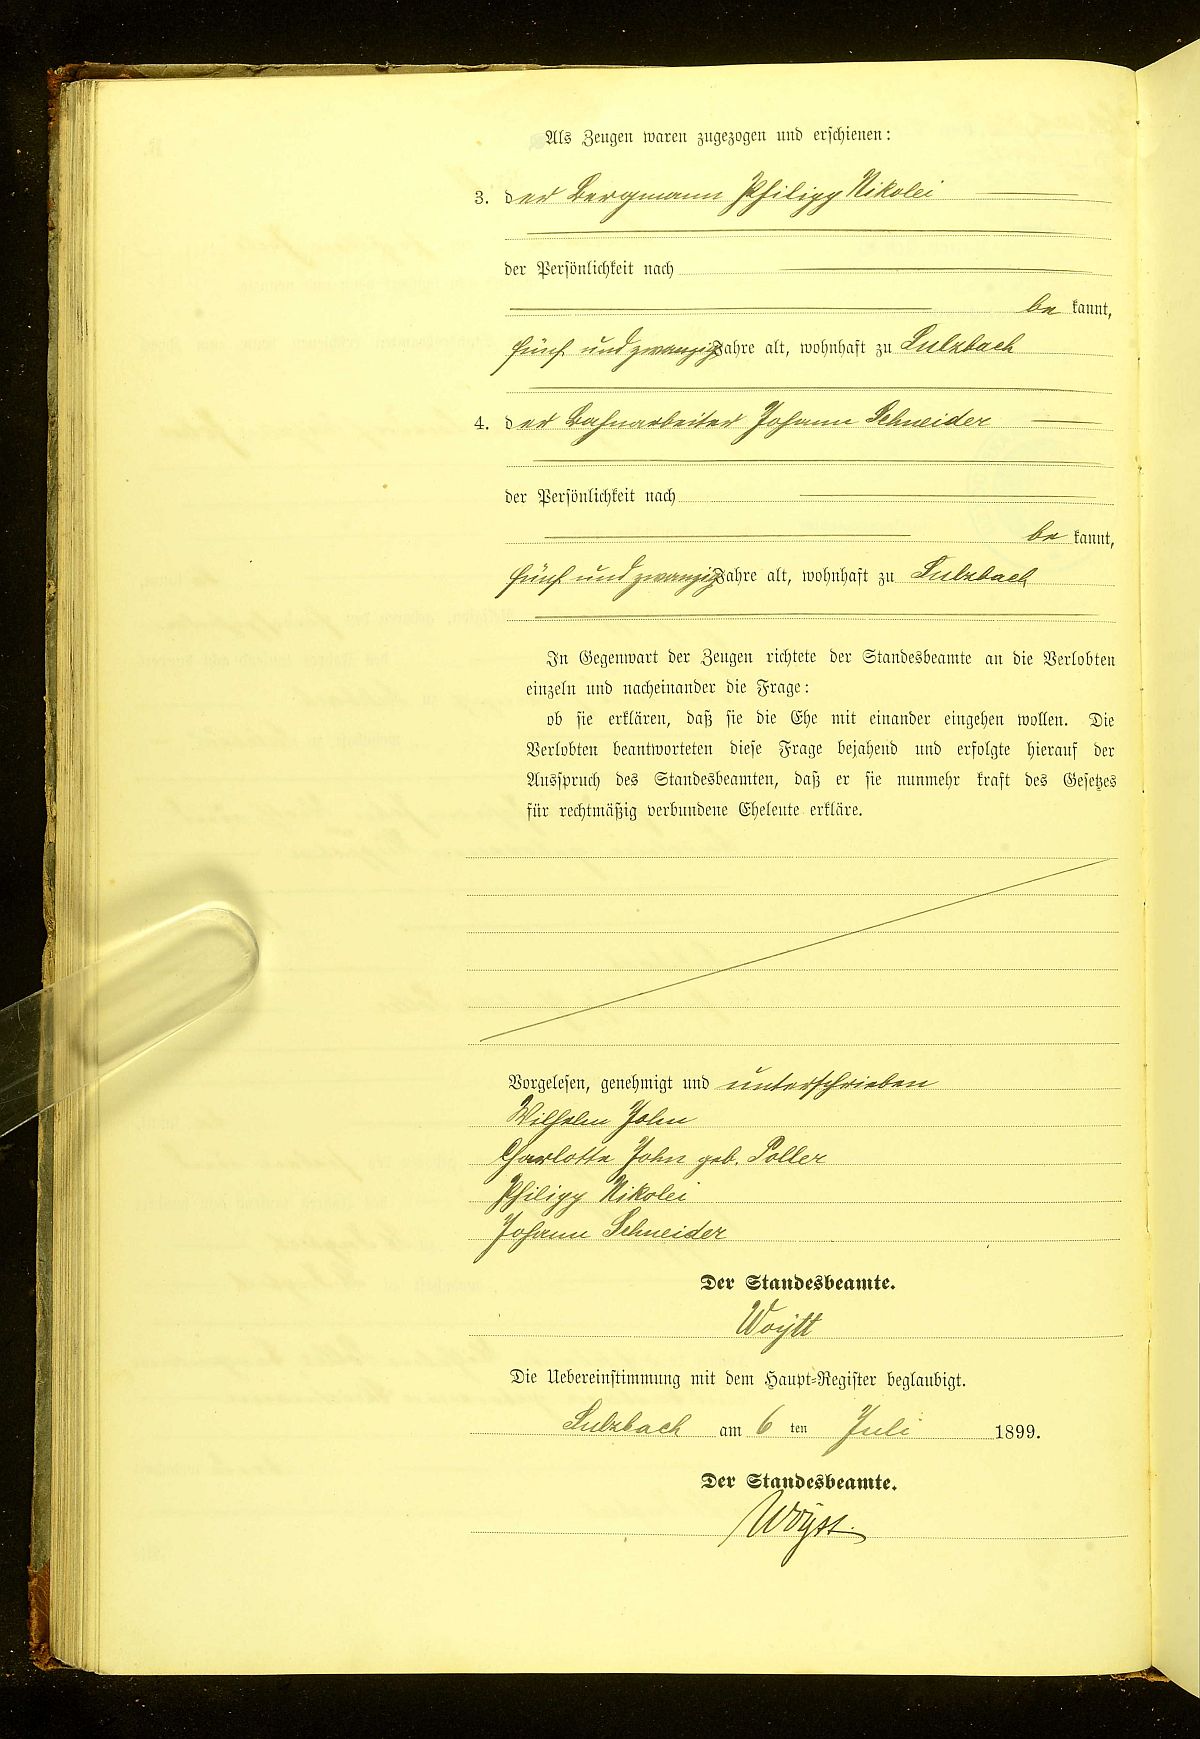 Als Zeugen waren zugezogen und erschienen:
3. der Bergmann Philipp Nikolei
der Persönlichkeit nach
be kannt,
fünf und zwanzig Jahre alt, wohnhaft zu Sulzbach
4. der Bahnarbeiter Johann Schneider
der Persönlichkeit nach
be kannt,
fünf und zwanzig Jahre alt, wohnhaft zu Sulzbach
In Gegenwart der Zeugen richtete der Standesbeamte an die Verlobten
einzeln und nacheinander die Frage:
ob sie erklären, daß sie die Ehe mit einander eingehen wollen. Die
Verlobten beantworteten diese Frage bejahend und erfolgte hierauf der
Ausspruch des Standesbeamten, daß er sie nunmehr kraft des Gesetzes
für rechtmäßig verbundene Eheleute erkläre.
Vorgelesen, genehmigt und unterschrieben
Wilhelm John
Charlotte John geb. Poller
Philipp Nikolei
Johann Schneider
Der Standesbeamte.
Woytt
Die Uebereinstimmung mit dem Haupt-Register beglaubigt.
Sulzbach am 6 ten Juli 1899.
Der Standesbeamte.
Woytt.